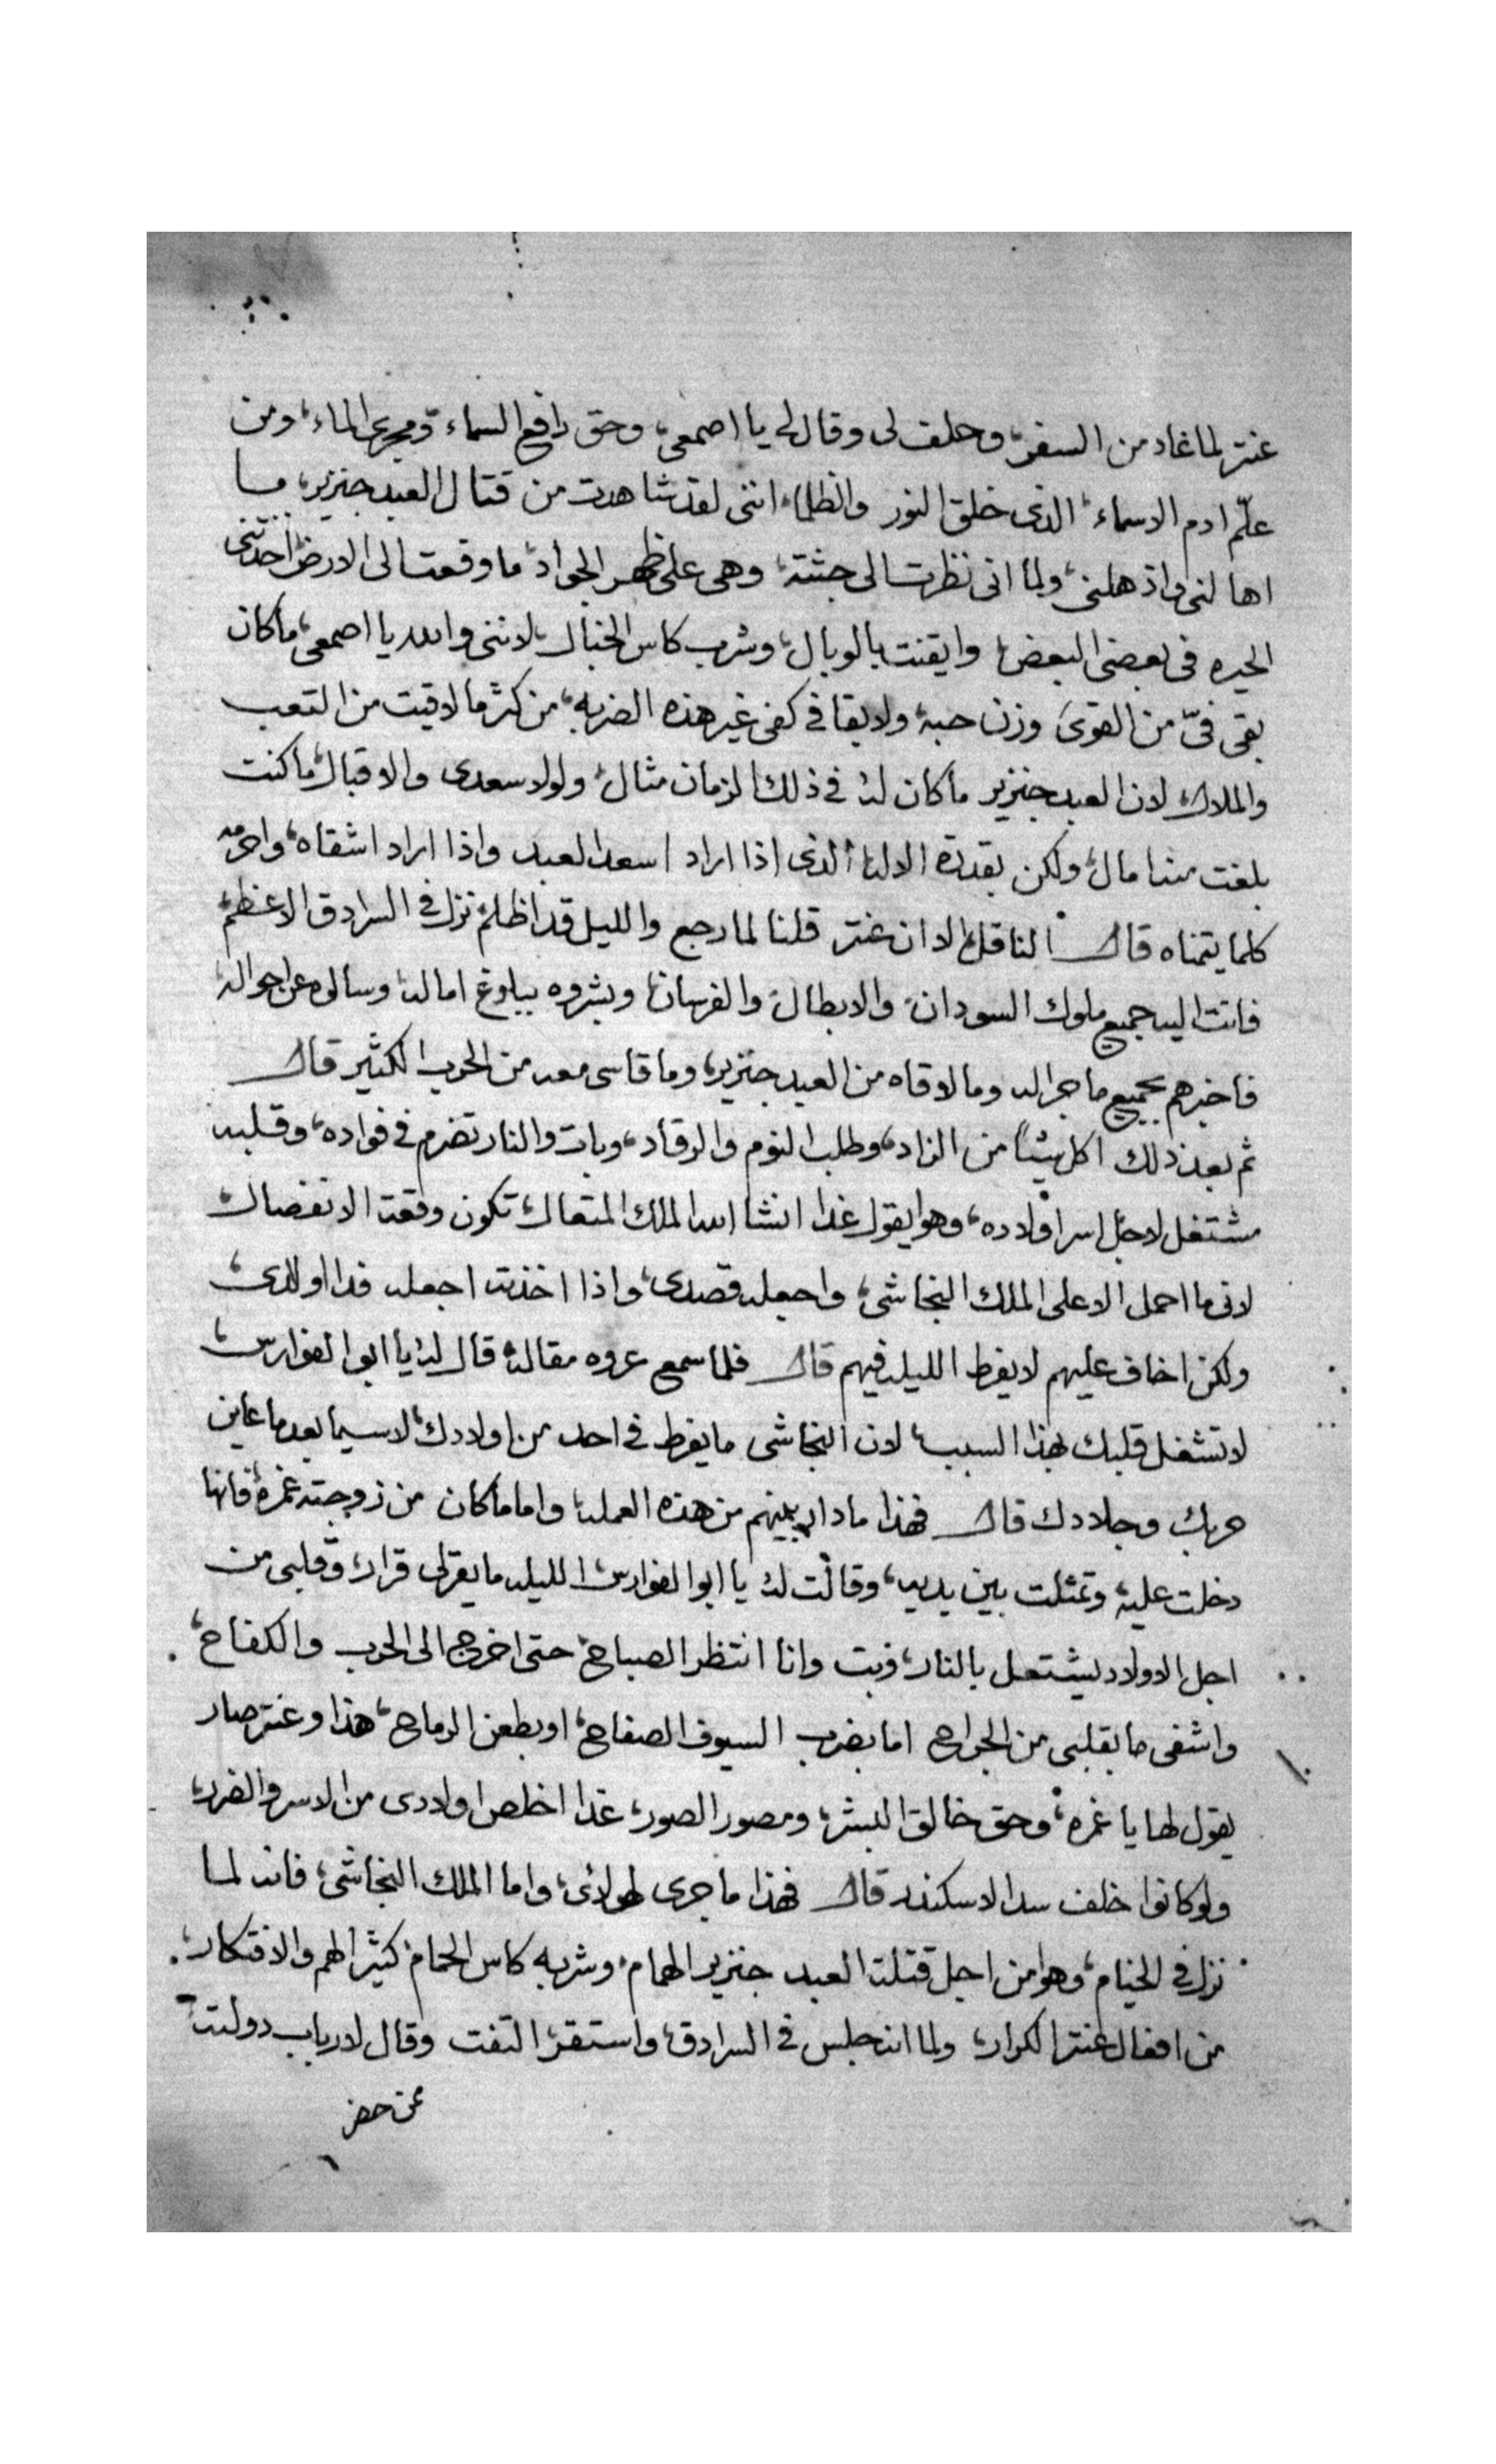 عنتر لما غاد من السفر، وحلف لى وقال لى يا اصمعى، وحق رافع السماء، ومجرى الماء، ومن
علّم ادم الاسماء، الذى خلق النور والظلماء، اننى لقد شاهدت من قتال العبد جنزير، ما
اهالنى واذهلنى، ولما انى نظرت الى جثته، وهى على ظهر الجواد، ما وقعت الى الارض، اخدتنى
الحيره فى بعضى البعض، وايقنت بالوبال، وشرب كاس الخبال، لاننى والله يا اصمعى، ماكان
بقى فىّ من القوى وزن حبه، ولا بقا فى كفى غير هذه الضربه، من كثر ما لاقيت من التعب
والملال، لان العبد جنزير ماكان له فى ذلك الزمان مثال، ولولا سعدى والاقبال، ماكنت
بلغت منه امال، ولكن بقدرة الاله الذى اذا اراد اسعد العبد واذا اراد اشقاه، واحرمه
كلما يتمناه قال الناقل، الا ان عنتر قلنا لما رجع والليل قد اظلم، نزل فى السرادق الاعظم،
فاتت اليه جميع ملوك السودان، والابطال والفرسان، وبشروه ببلوغ اماله، وسالوه عن احواله،
فاخبرهم بجميع ما جرا له وما لاقاه من العبد جنزير، وما قاسى معه من الحرب الكثير قال
ثم بعد ذلك اكل شيئاً من الزاد، وطلب النوم والرقاد، وبات والنار تضرم فى فواده، وقلبه
مشتغل لاجل اسر اولاده، وهو يقول غدا انشا الله الملك المتعال، تكون وقعة الانفصال،
لانى ما احمل الا على الملك النجاشى، واجعله قصدى، واذا اخذته اجعله فدا اولادى،
ولكن اخاف عليهم لا يفرط الليله فيهم قال فلما سمع عروه مقاله، قال له يا ابو الفوارس،
لا تشغل قلبك بهذا السبب، لان النجاشى ما يفرط فى احد من اولادك، لاسيما بعد ما عاين
حربك وجلادك قال فهذا ما دار بينهم من هذه العمله، واما ماكان من زوجته غمره، فانها
دخلت عليه، وتمثلت بين يديه، وقالت له يا ابو الفوارس، الليله ما يقر لى قرار، وقلبى من
اجل الاولاد يشتعل بالنار، فبت وانا انتظر الصباح، حتى اخرج الى الحرب والكفاح،
واشفى ما بقلبى من الجراح اما بضرب السيوف الصفاح، او بطعن الرماح، هذا وعنتر صار
يقول لها يا غمره، وحق خالق البشر، ومصور الصور، غدا اخلص اولادى من الاسر والضرر،
ولو كانوا خلف سد الاسكندر قال فهذا ما جرى لهولائى، واما الملك النجاشى، فانه لما
نزل فى الخيام، وهو من اجل قتلة العبد جنزير الهمام، وشربه كاس الحمام، كثير الهم والافتكار،
من افعال عنتر الكرار، ولما انه جلس فى السرادق، واستقر، التفت وقال لارباب دولته،
ممن حضر